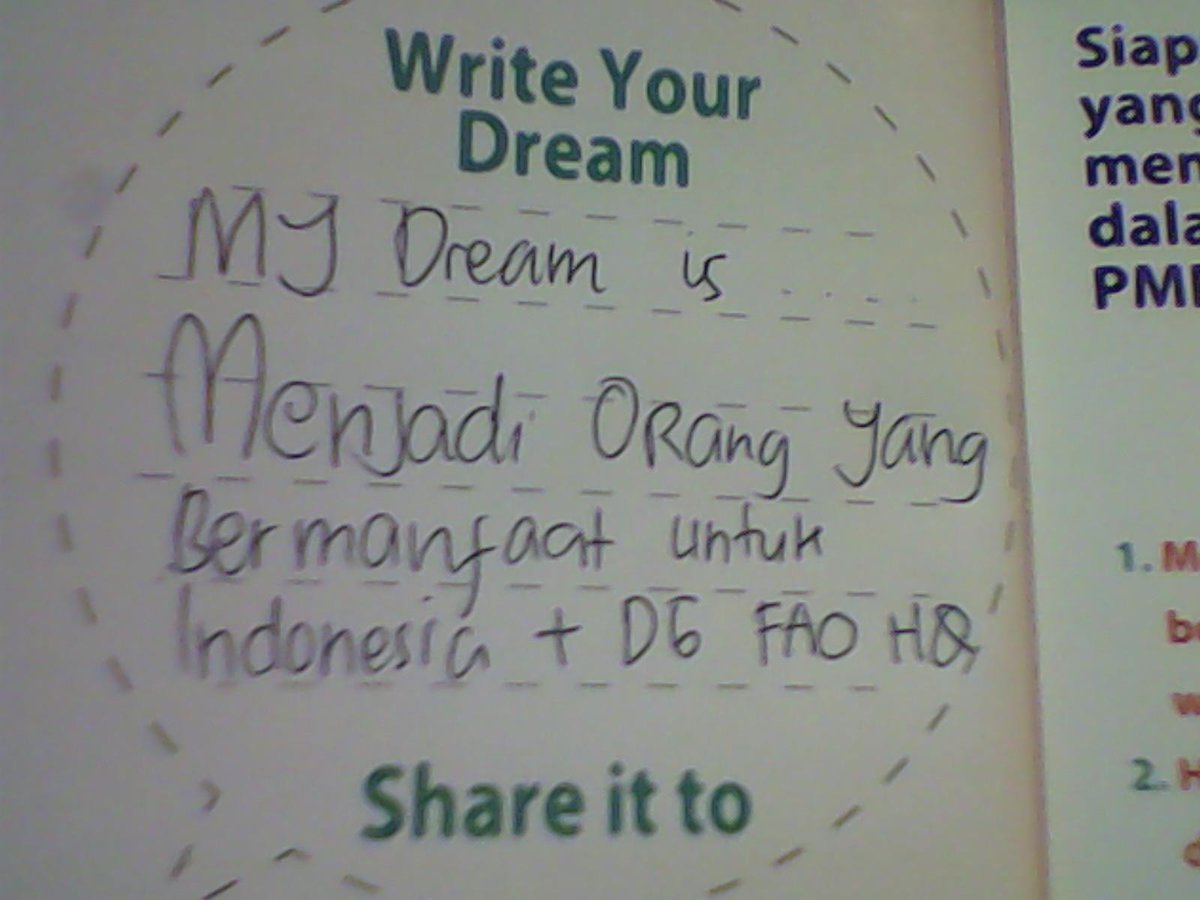 Write Your
Dream
My Dream is ....
Menjadi ORang yang
Bermanfaat untuk
Indonesia + DG FAO HQ
Share it to
Siap
yang
men
dala
PMI
1. M
be
w
2. H